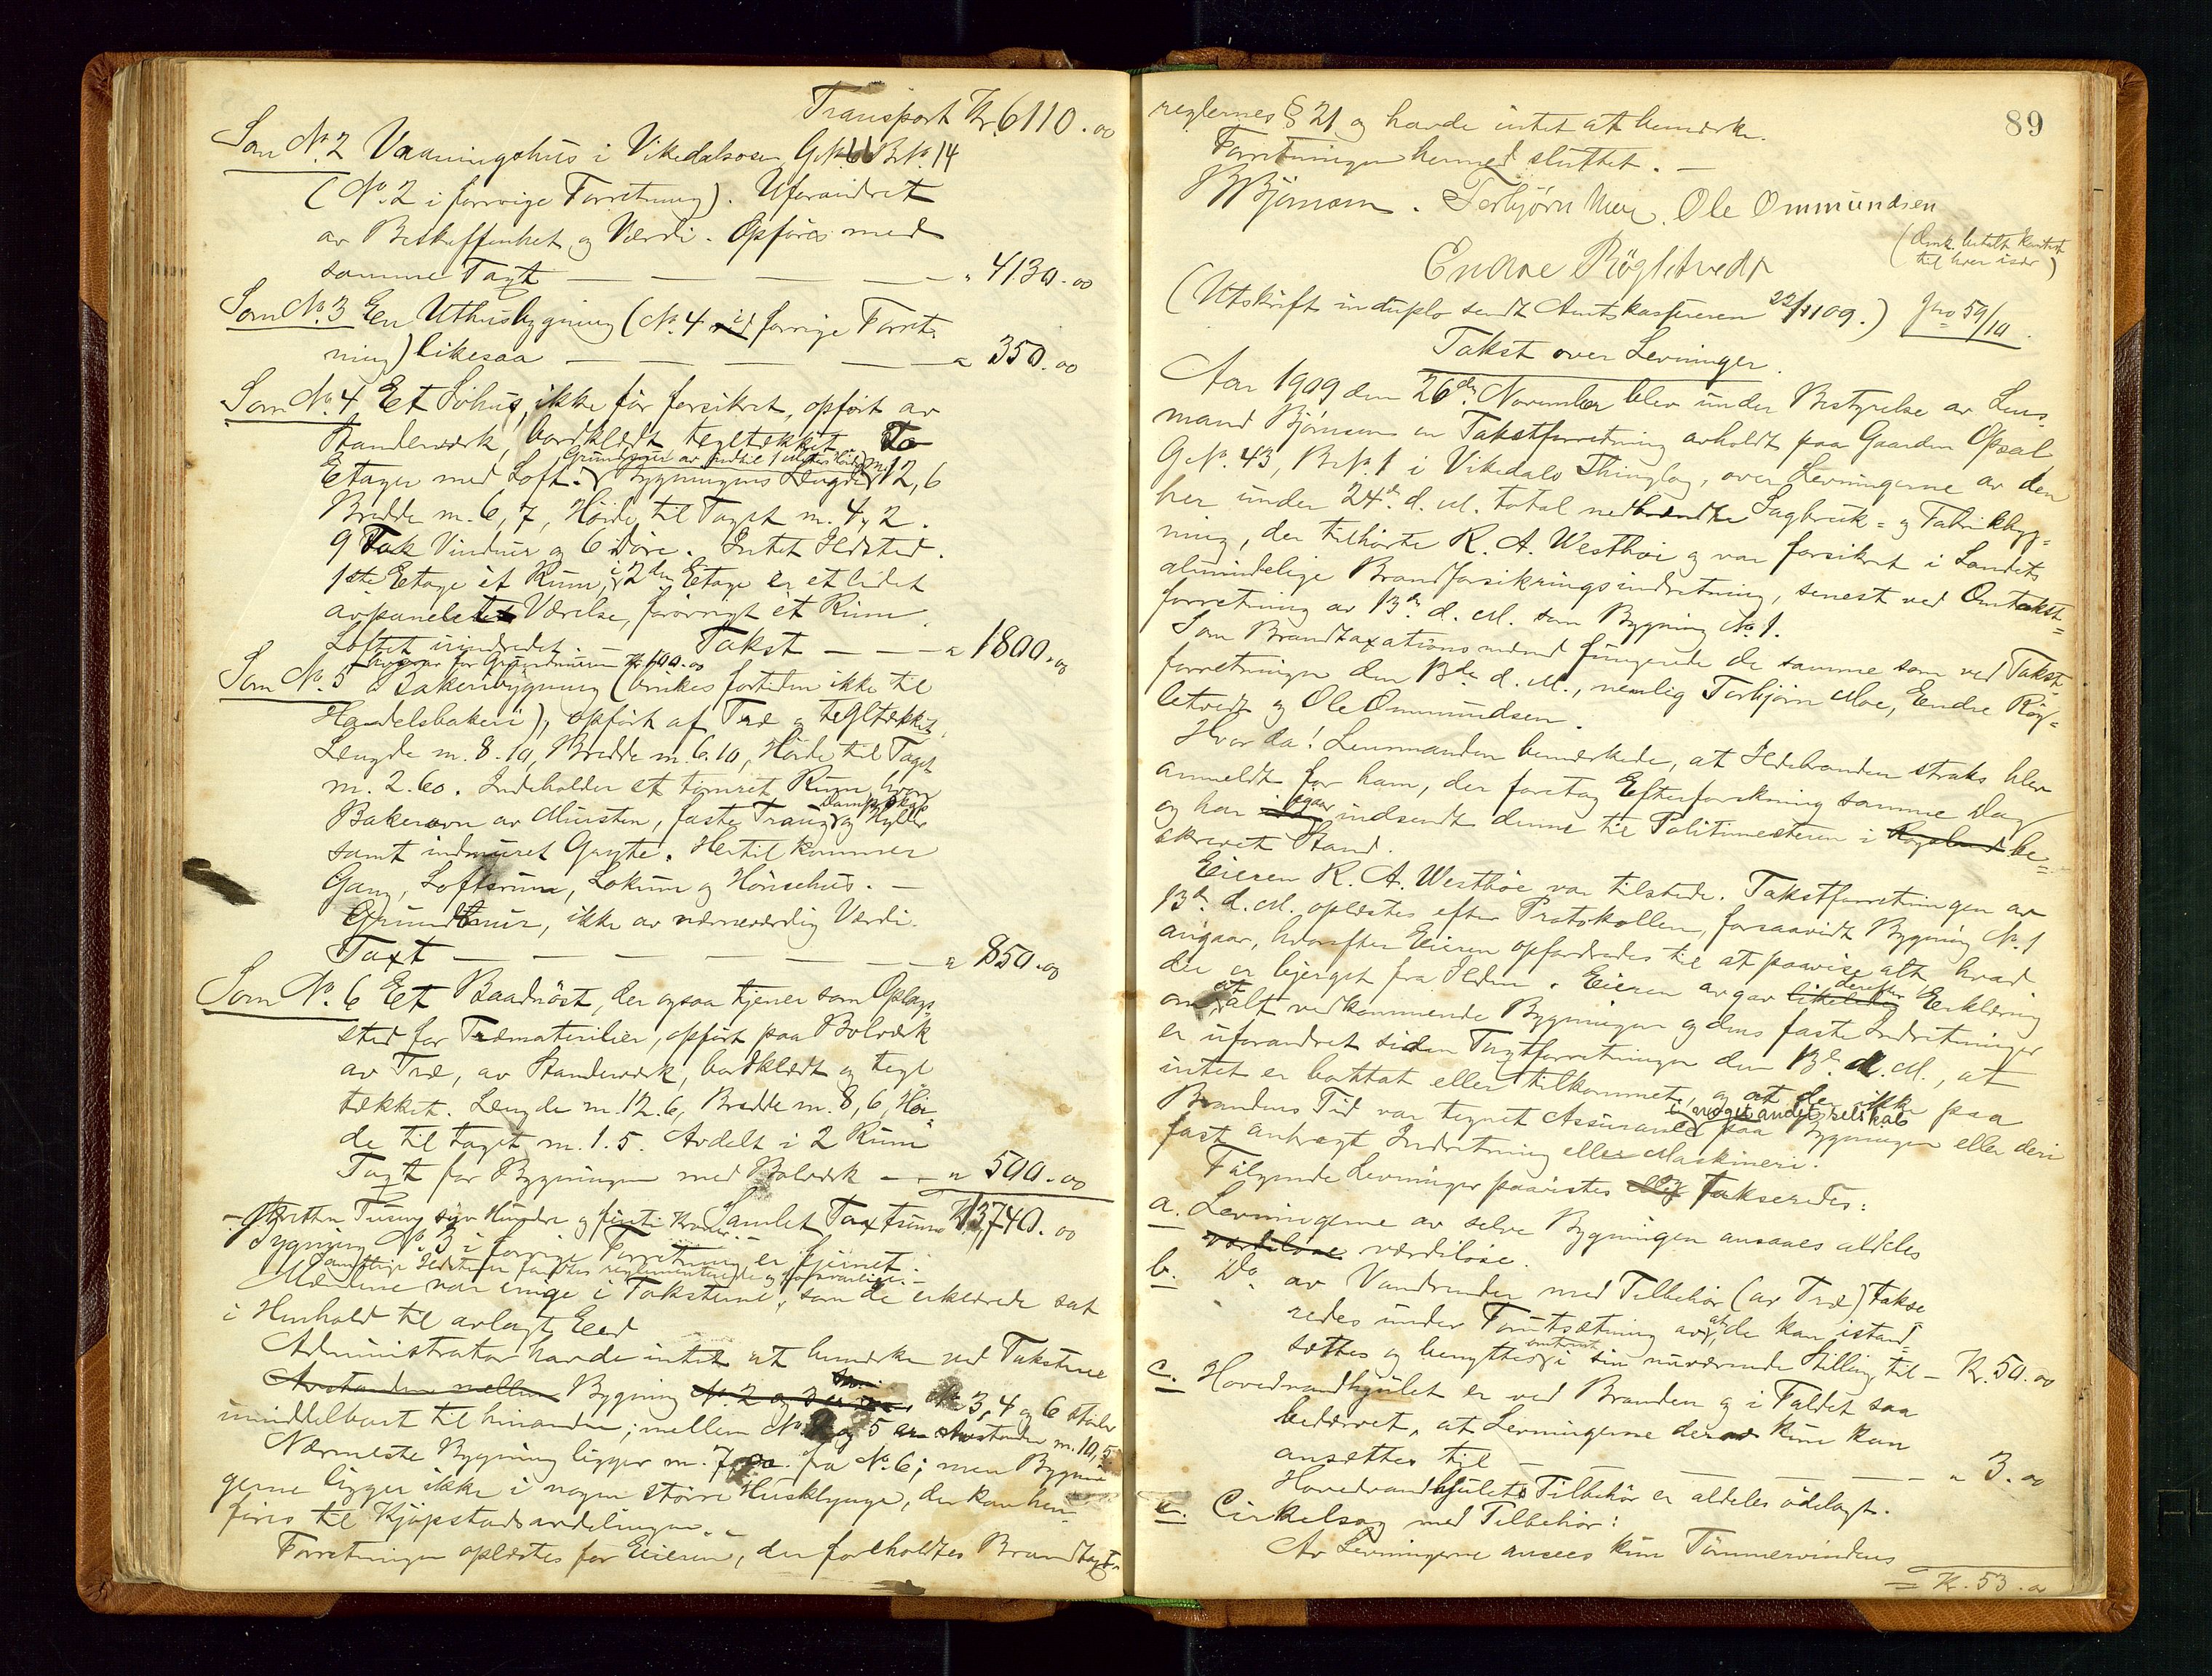 Transport Kr. 6110.00
Som No. 2 Vaaningshus i Vikedalsosen, G.No. 66 B.No. 14
(No. 2 i forrige Forretning). Uforandret
av Beskaffenhet og Værdi. Opføres med
samme Taxt — — — " 4130.00
Som No. 3 En Uthusbygning (No. 4 i forrige Forret-
ning) likesaa — — — " 350.00
Som No. 4 Et Søhus, ikke før forsikret, opført av
Standerverk, bordklædt tegltækket. To
Grundmur av indtil 1 Meters Høide
Etager med Loft. Bygningens Længde m. 12,6
Bredde m. 6,7, Høide til Taget m. 4,2.
9 Fak Vinduer og 6 Døre. Intet Ildsted.
1ste Etage et Rum, i 2den Etage er et lidet
avpanelet Værelse, forøvrigt et Rum.
Loftet uindredet. — Takst — — " 1800.00
hvorav for Grundmuren Kr. 100.00
Som No. 5 Bakeribygning (brukes fortiden ikke til
Handelsbakeri), opført af Træ og tegltækket,
Længde m. 8.10, Bredde m. 6.10, Høide til Taget
m. 2.60. Indeholder et tømret Rum, hvor
Dampskap
Bakerovn av Mursten, faste Traug og Hylder
samt indmuret Gryte. Hertil kommer
Gang, Loftsrum, Lokum og Hønsehus. —
Grundmur, ikke av nævneværdig Værdi.
Taxt — — — — " 850.00
Som No. 6 Et Baadnøst, der ogsaa tjener som Oplags-
sted for Træmaterialier, opført paa Bolværk
av Træ, av Standerverk, bordklædt og tegl
tækket. Længde m. 12.6, Bredde m. 8,6, Høi-
de til taget m. 1.5. Avdelt i 2 Rum
Taxt for Bygningen med Bolværk — " 500.00
Tretten Tusen syv Hundre og firti Kroner. Samlet Taxtsum Kr. 13,740.00
Bygning No. 3 i forrige Forretning er fjernet. —
Samtlige Ildsteder fandtes reglementerede og forsvarlige. —
Mændene var enige i Taksterne, som de erklærede sat
i Henhold til avlagt Eed
Administrator havde intet at bemerke ved Taksterne
Avstanden mellem Bygning No. 2 og 3 No. 3, 4 og 6 støder
umiddelbart til hinanden; mellem No. og 5 er Avstanden m. 10,5
Nærmeste Bygning ligger m. 7,00 fra No. 6; men Bygnin-
gerne ligger ikke i nogen større Husklynge, der kan hen-
føres til Kjøpstadsavdelingen. —
Forretningen oplæstes for Eieren, der foreholdtes Brandtaxt-
89
reglernes § 21 og havde intet at bemerke.
Forretningen hermed sluttet. —
Bjørnsen. Torbjørn Moe. Ole Ommundsen
Endre Røgletvedt
(Utskrift in duplo sendt Amtskassereren 22/11 09.) Jno 59/10
Takst over Levninger.
Aar 1909 den 26de November blev under Bestyrelse av Lens-
mand Bjørnsen en Takstforretning avholdt paa Gaarden Opsal
G.No. 43, B.No. 1 i Vikedals Thinglag, over Levningerne av den
her under 24de d. M. total nedbrændte Sagbruk- og Fabrikbyg-
ning, der tilhørte R. A. Westbøe og var forsikret i Landets
almindelige Brandforsikringsindretning, senest ved Omtakst-
forretning av 13de d. M. som Bygning No. 1.
Som Brandtaxationsmænd fungerede de samme som ved Takst-
forretningen den 13de d. M., nemlig Torbjørn Moe, Endre Røg-
letvedt og Ole Ommundsen.
Hvor da! Lensmanden bemerkede, at Ildebranden straks blev
anmeldt for ham, der foretog Efterforskning samme Dag
igaar
og har indsendt denne til Politimesteren i Rogaland be-
skrevet Stand.
Eieren R. A. Westbøe var tilstede. Takstforretningen av
13de d. M. oplæstes efter Protokollen, forsaavidt Bygning No. 1
angaar, hvorefter Eieren opfordredes til at paavise alt hvad
der er bjerget fra Ilden. Eieren avgav derefter Erklæring
om, at alt vedkommende Bygningen og dens faste Indretninger
er uforandret siden Taxtforretningen den 13de d. M., at
intet er borttat eller tilkommet, og at der ikke paa
i noget andet selskab
Brandens Tid var tegnet Assurance paa Bygningen eller deri
fast anbragt Indretning eller Maskineri.
Følgende Levninger paavistes og takseredes:
a. Levningerne av selve Bygningen ansaaes aldeles
værdiløse værdiløse.
b. Do. av Vandrender med Tilbehør (av Træ) takse-
redes under Forutsætning av, at de kan istand-
sættes og benyttes i sin nuværende Stilling til — Kr. 50.00
c. Hovedvandhjulet er ved Branden og i Faldet saa
bedærvet, at Levningerne derav kun kan
ansættes til — — — " 3.00
Hovedvandhjulets Tilbehør er aldeles ødelagt.
d. Cirkelsag med Tilbehør:
Av Levningerne ansees kun Tømmervindens
Kr. 53.00